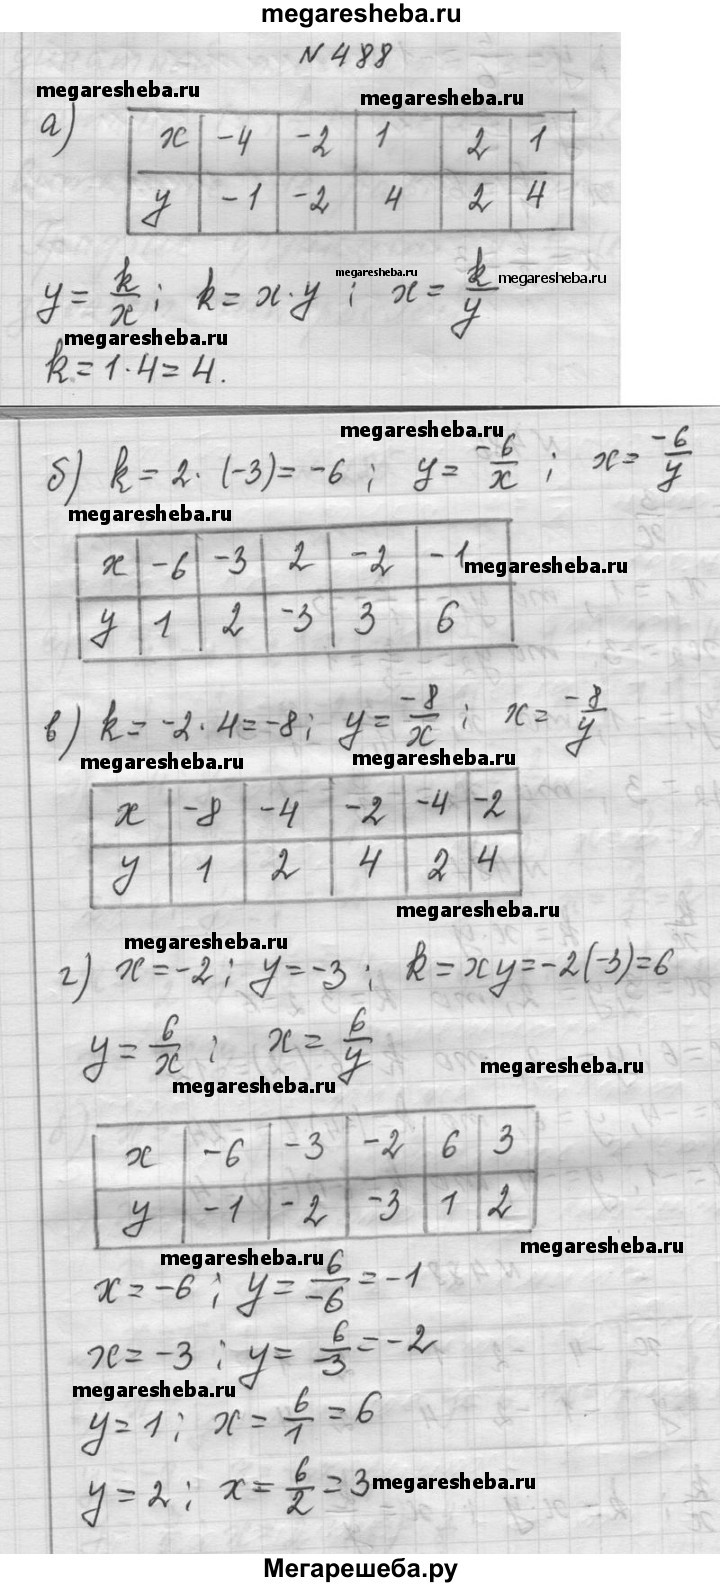 megaresheba.ru
N 488
megaresheba.ru megaresheba.ru
а)
x -4 -2 1 2 1
y -1 -2 4 2 4
megaresheba.ru
y = k/x ; k = x·y ; x = k/y megaresheba.ru
megaresheba.ru
k = 1·4 = 4.
megaresheba.ru
б) k = 2·(-3) = -6 ; y = -6/x ; x = -6/y
megaresheba.ru
x -6 -3 2 -2 -1 megaresheba.ru
y 1 2 -3 3 6
в) k = -2·4 = -8 ; y = -8/x ; x = -8/y
megaresheba.ru megaresheba.ru
x -8 -4 -2 -4 -2
y 1 2 4 2 4
megaresheba.ru
megaresheba.ru
г) x = -2 ; y = -3 ; k = xy = -2(-3) = 6
y = 6/x ; x = 6/y
megaresheba.ru megaresheba.ru
x -6 -3 -2 6 3
y -1 -2 -3 1 2
megaresheba.ru megaresheba.ru
x = -6 ; y = 6/-6 = -1
x = -3 ; y = 6/-3 = -2
megaresheba.ru
y = 1 ; x = 6/1 = 6
y = 2 ; x = 6/2 = 3 megaresheba.ru
Мегарешеба.ру